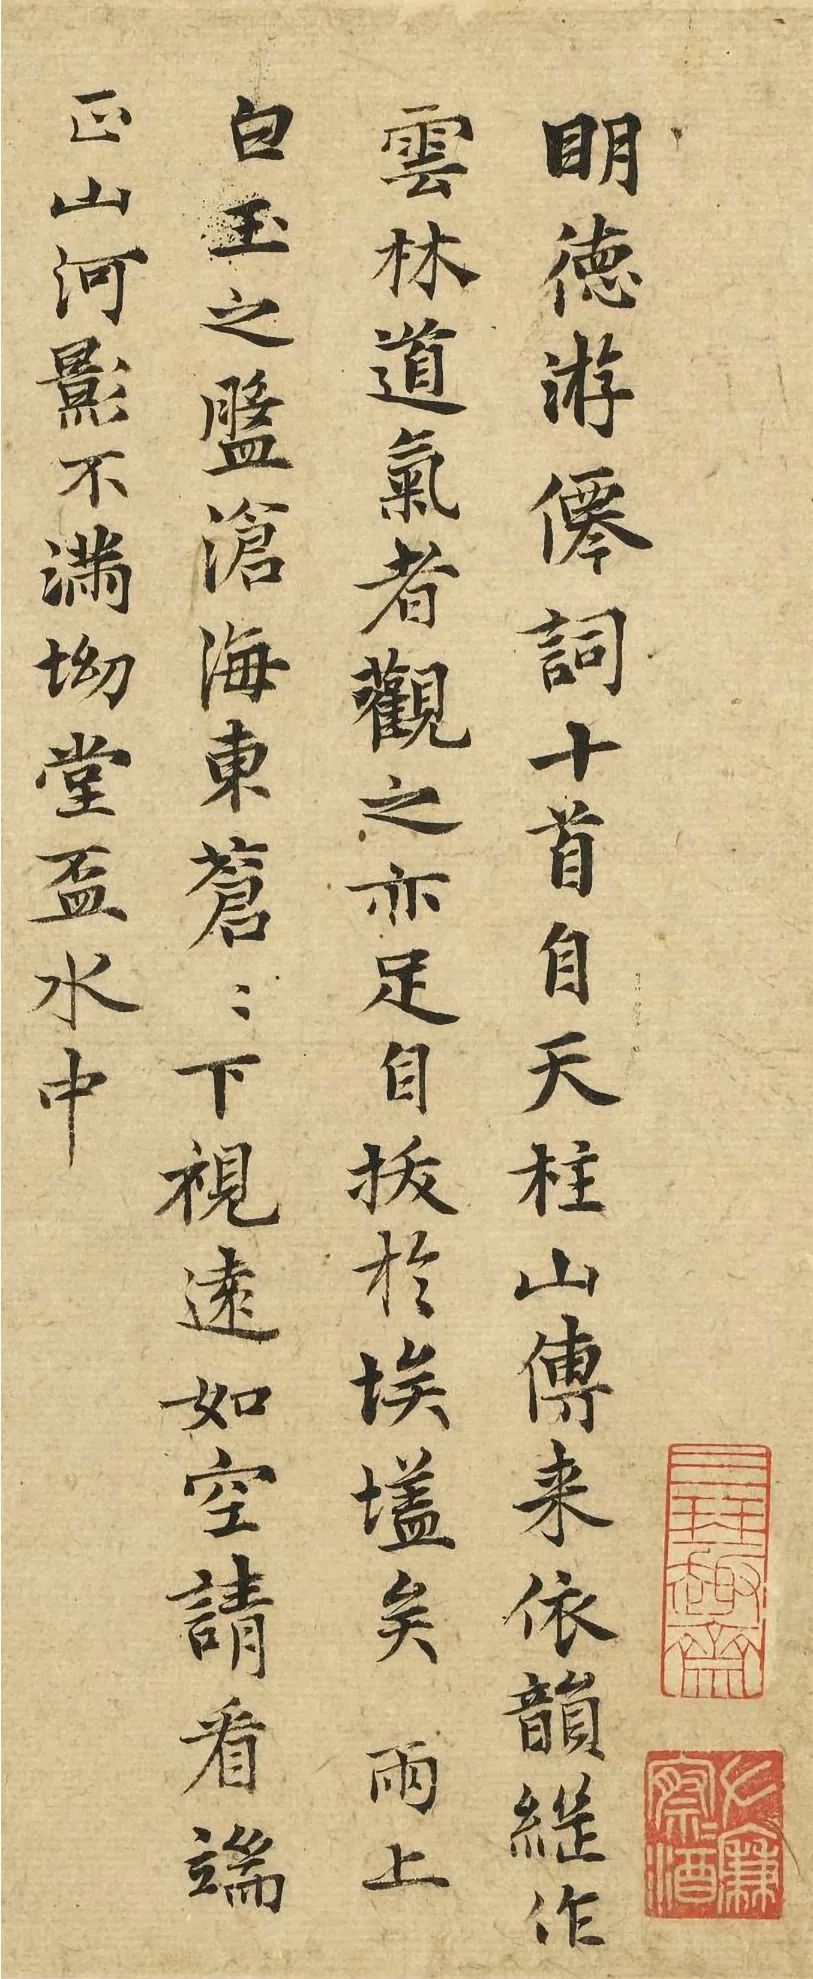 明德游僊詞十首自天柱山傳来依韻継作
雲林道氣者觀之亦足自拔於埃壒矣 兩上
白玉之盤滄海東蒼〻下視遠如空請看端
正山河影不滿坳堂盃水中
三希趣齋